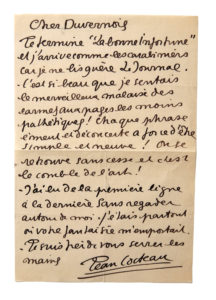 Cher Duvernois
Je termine "La bonne infortune"
et j'arrive comme les carabiniers
car je ne lis guère Le Journal.
C'est si beau que je sentais
le merveilleux malaise des
larmes, aux pages les moins
pathétiques! Chaque phrase
émeut et déconcerte à force d'être
simple et neuve! On se
retrouve sans cesse et c'est
le comble de l'art!
J'ai lu de la première ligne
à la dernière sans regarder
autour de moi. J'étais partout
où votre fantaisie m'emportait.
Je suis fier de vous serrer les
mains
Jean Cocteau